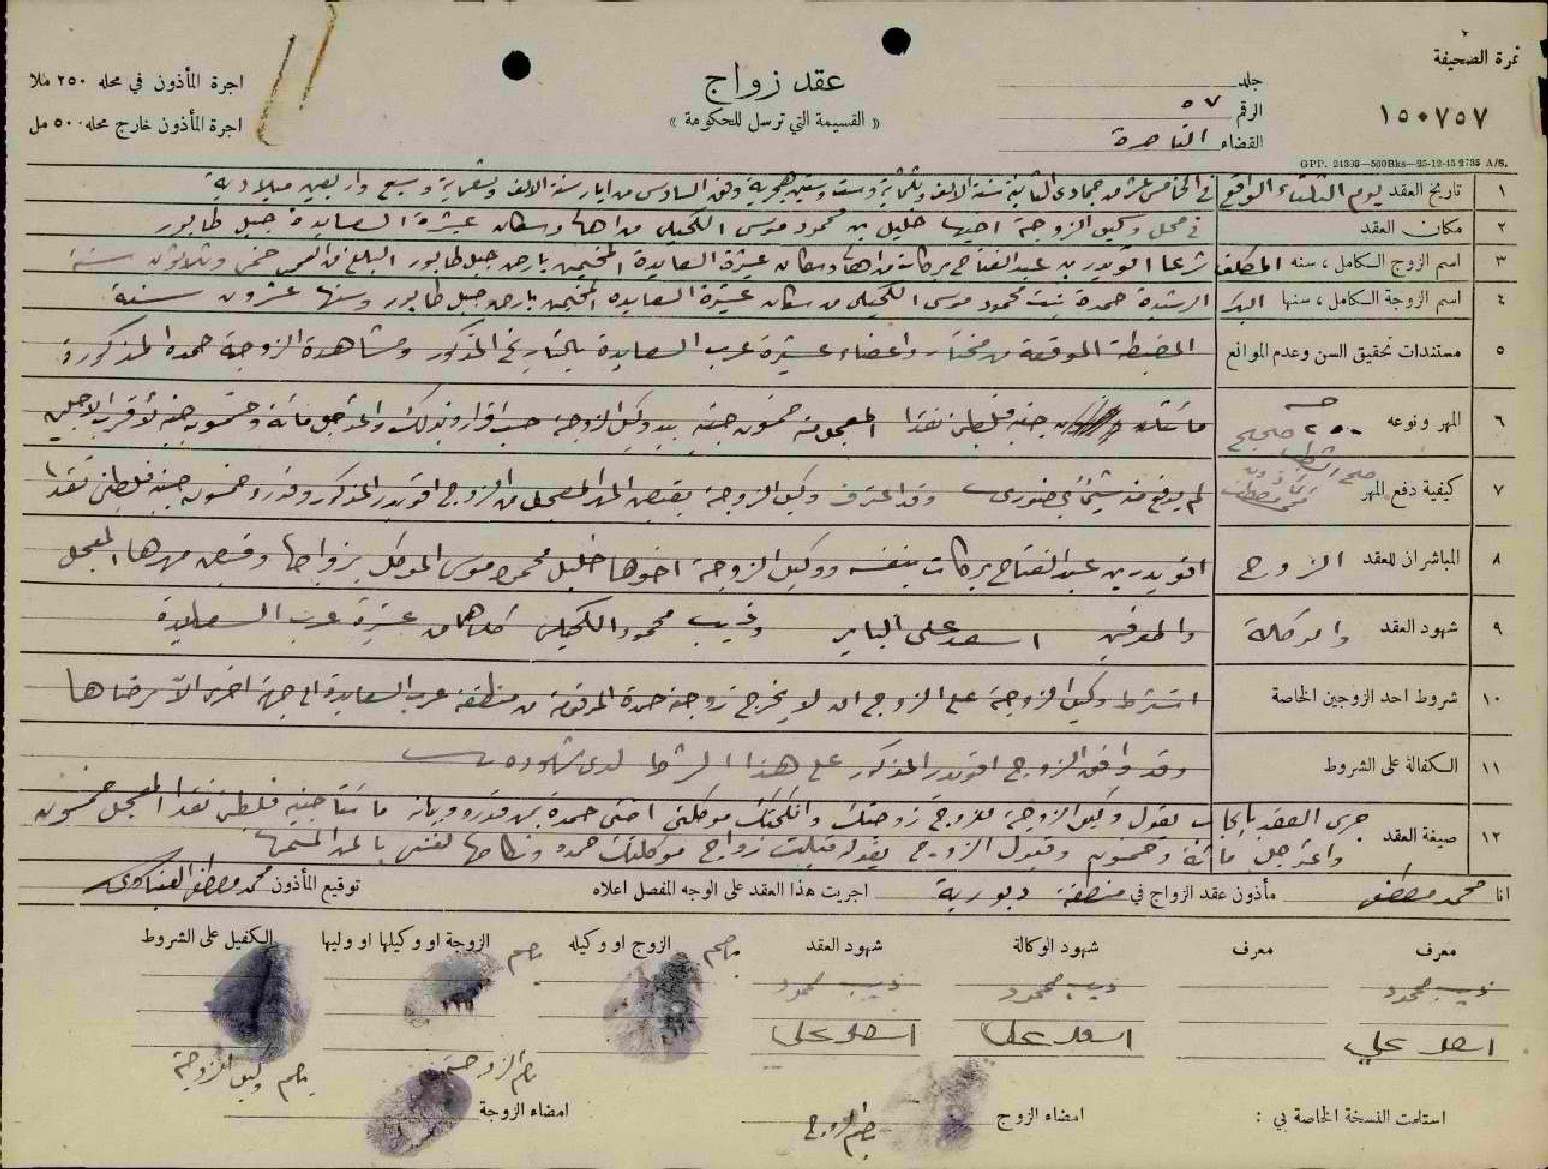 نمرة الصحيفة
١٥٠٧٥٧
جلد
الرقم ٥٧
القضاء الناصرة
عقد زواج
« القسيمة التي ترسل للحكومة »
اجرة المأذون في محله ٢٥٠ ملا
اجرة المأذون خارج محله ٥٠٠ مل
GPP. 24393—500Bks—25-12-45 2735 A/S.
١ تاريخ العقد يوم الثلثاء الواقع في الخامس عشر من جمادى الثانية سنة الالف وثلثماية وست وستين هجرية وفي السادس من ايار سنة الالف وتسعماية وسبع واربعين ميلادية
٢ مكان العقد في محل وكيل الزوجة اخيها خليل بن محمود موسى الكحيلي من اهالي وسكان عشيرة السعايدة جبل طابور
٣ اسم الزوج الكامل ، سنه المكلف شرعا اقويدر بن عبد الفتاح بركات من اهالي وسكان عشيرة السعايدة المخيمين بارض جبل طابور البالغ من العمر خمس وثلاثون سنة
٤ اسم الزوجة الكامل ، سنها البكر الرشيدة حمدة بنت محمود موسى الكحيلي من سكان عشيرة السعايده المخيمين بارض جبل طابور وسنها عشرون سنة
٥ مستندات تحقيق السن وعدم الموانع المضبطة الموقعة من مختار واعضاء عشيرة عرب السعايدة بالتاريخ المذكور ومشاهدة الزوجة حمده المذكورة
٦ المهر ونوعه ٢٠٠ جنيه صحيح مائتان جنيه فلسطيني نقدا المعجل منه خمسون جنيه بيد وكيل الزوجة حسب اقراره بذلك والمؤجل مائة وخمسون جنيه لأقرب الاجلين
صح الشطب
٧ كيفية دفع المهر لم يدفع منه شيئا بحضوري وقد اعترف وكيل الزوجة بقبض المهر المعجل من الزوج اقويدر المذكور وقدره خمسون جنيه فلسطيني نقدا
٨ المباشران للعقد الزوج اقويدر بن عبد الفتاح بركات بنفسه ووكيل الزوجة اخوها خليل محمود موسى الموكل بزواجها وقبض مهرها المعجل
٩ شهود العقد والوكالة والمعرفين اسعد علي وذيب محمود الكحيلي كلاهما من عشيرة عرب السعايدة
١٠ شروط احد الزوجين الخاصة اشترط وكيل الزوجة على الزوج ان لا يخرج زوجته حمدة المرقومة من منطقة عرب السعايدة الى جهة اخرى الا برضاها
١١ الكفالة على الشروط وقد وافق الزوج اقويدر المذكور على هذا الشرط لدى شهوده
١٢ صيغة العقد جرى العقد بإيجاب بقول وكيل الزوجة للزوج زوجتك وانكحتك موكلتي اختي حمدة بمهر قدره وبيانه مائتا جنيه فلسطيني نقدا المعجل خمسون
والمؤجل مائة وخمسون وقبول الزوج بقوله قبلت زواج موكلتك حمده ونكاحها لنفسي بالمهر المسمى
انا محمد مصطفى مأذون عقد الزواج في منطقة دبورية اجريت هذا العقد على الوجه المفصل اعلاه توقيع المأذون محمد مصطفى
معرف معرف شهود الوكالة شهود العقد الزوج او وكيله الزوجة او وكيلها او وليها الكفيل على الشروط
ذيب محمود ذيب محمود ذيب محمود
اسعد علي اسعد علي اسعد علي
بصم بصم
بصم الزوجة بصم وكيل الزوجة
استلمت النسخة الخاصة بي : امضاء الزوج بصم الزوج امضاء الزوجة